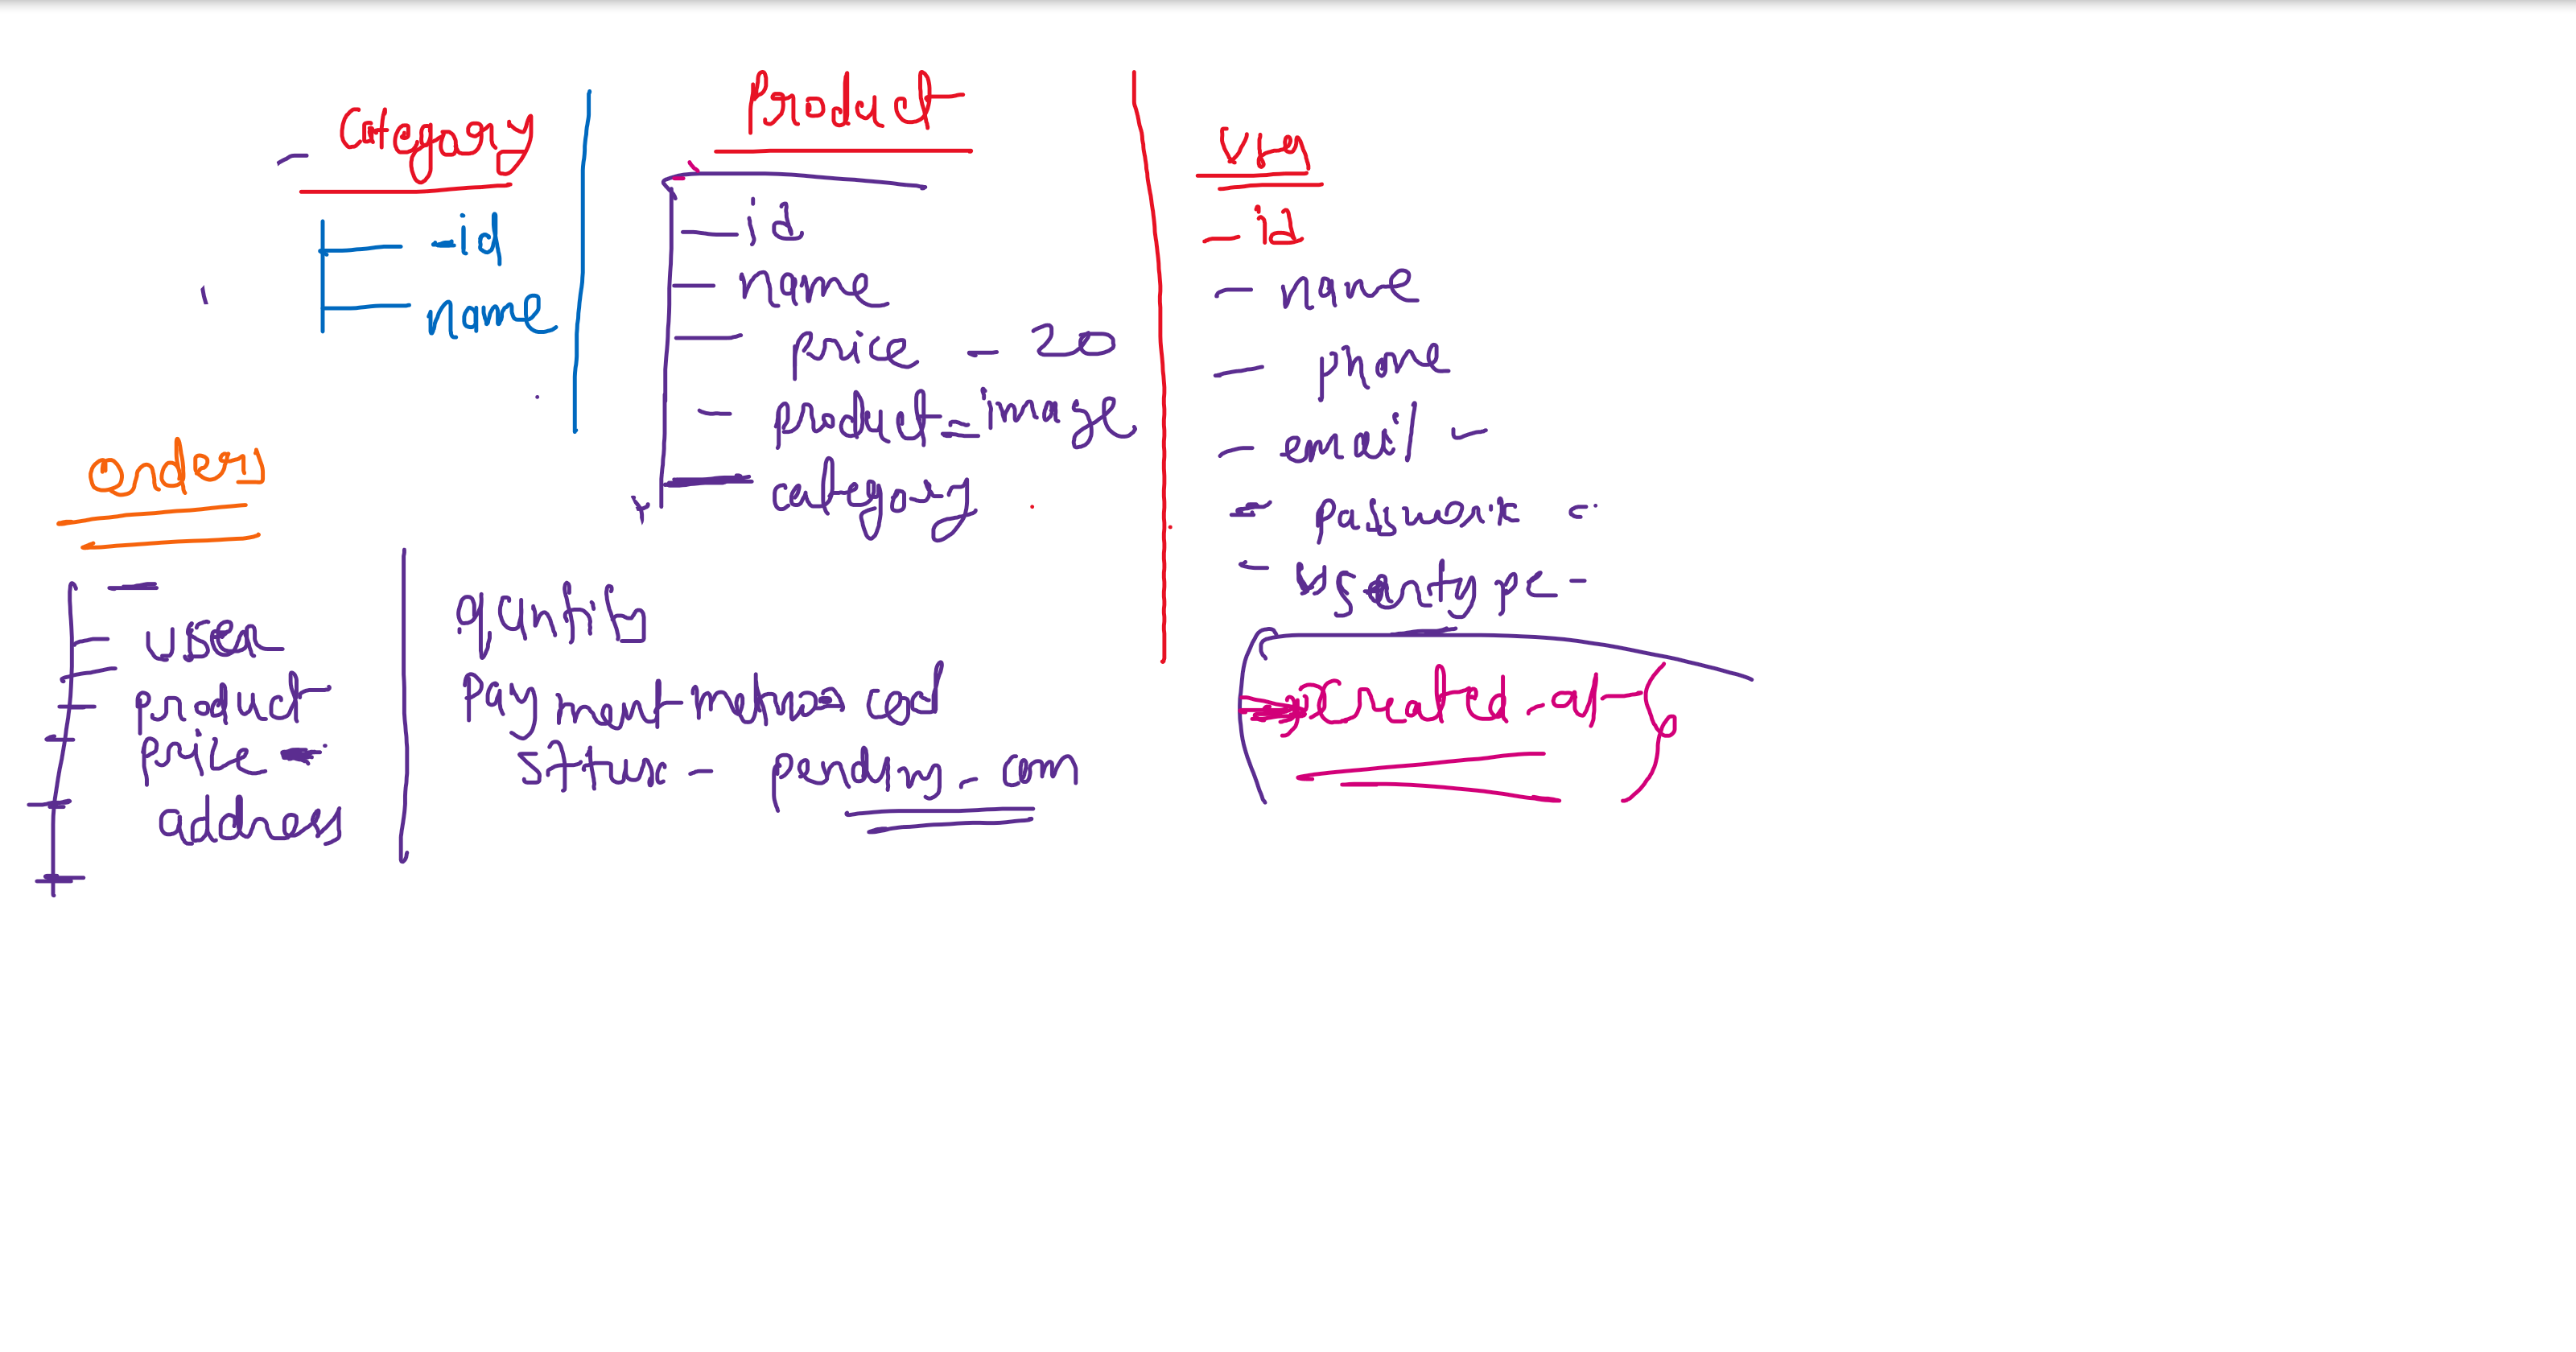 Category
-id
name
Product
id
name
price - 20
product=image
category
user
- id
- name
- phone
- email -
- password -
- usertype -
created_at
Orders
user
product
price -
address
qantity
Payment-method cod
sttus - pending - com